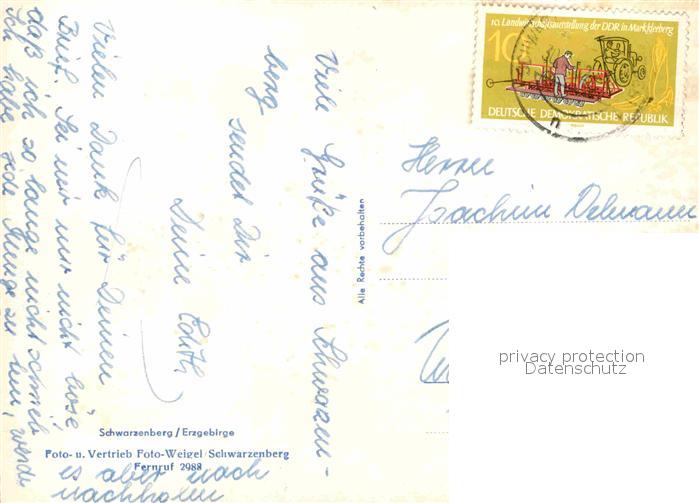 10. Landwirtschaftsausstellung der DDR in Markkleeberg
10
DEUTSCHE DEMOKRATISCHE REPUBLIK
Herrn
Joachim Delmann
Alle Rechte vorbehalten
privacy protection
Datenschutz
Viele Grüße aus Schwarzen-
berg
sendet Dir
Deine Edith
Vielen Dank für Deinen
Brief. Sei mir nur nicht böse
daß ich so lange nicht schrieb
Ich habe jede Menge zu tun, werde
es aber noch
nachholen
Schwarzenberg / Erzgebirge
Foto- u. Vertrieb Foto-Weigel/Schwarzenberg
Fernruf 2988